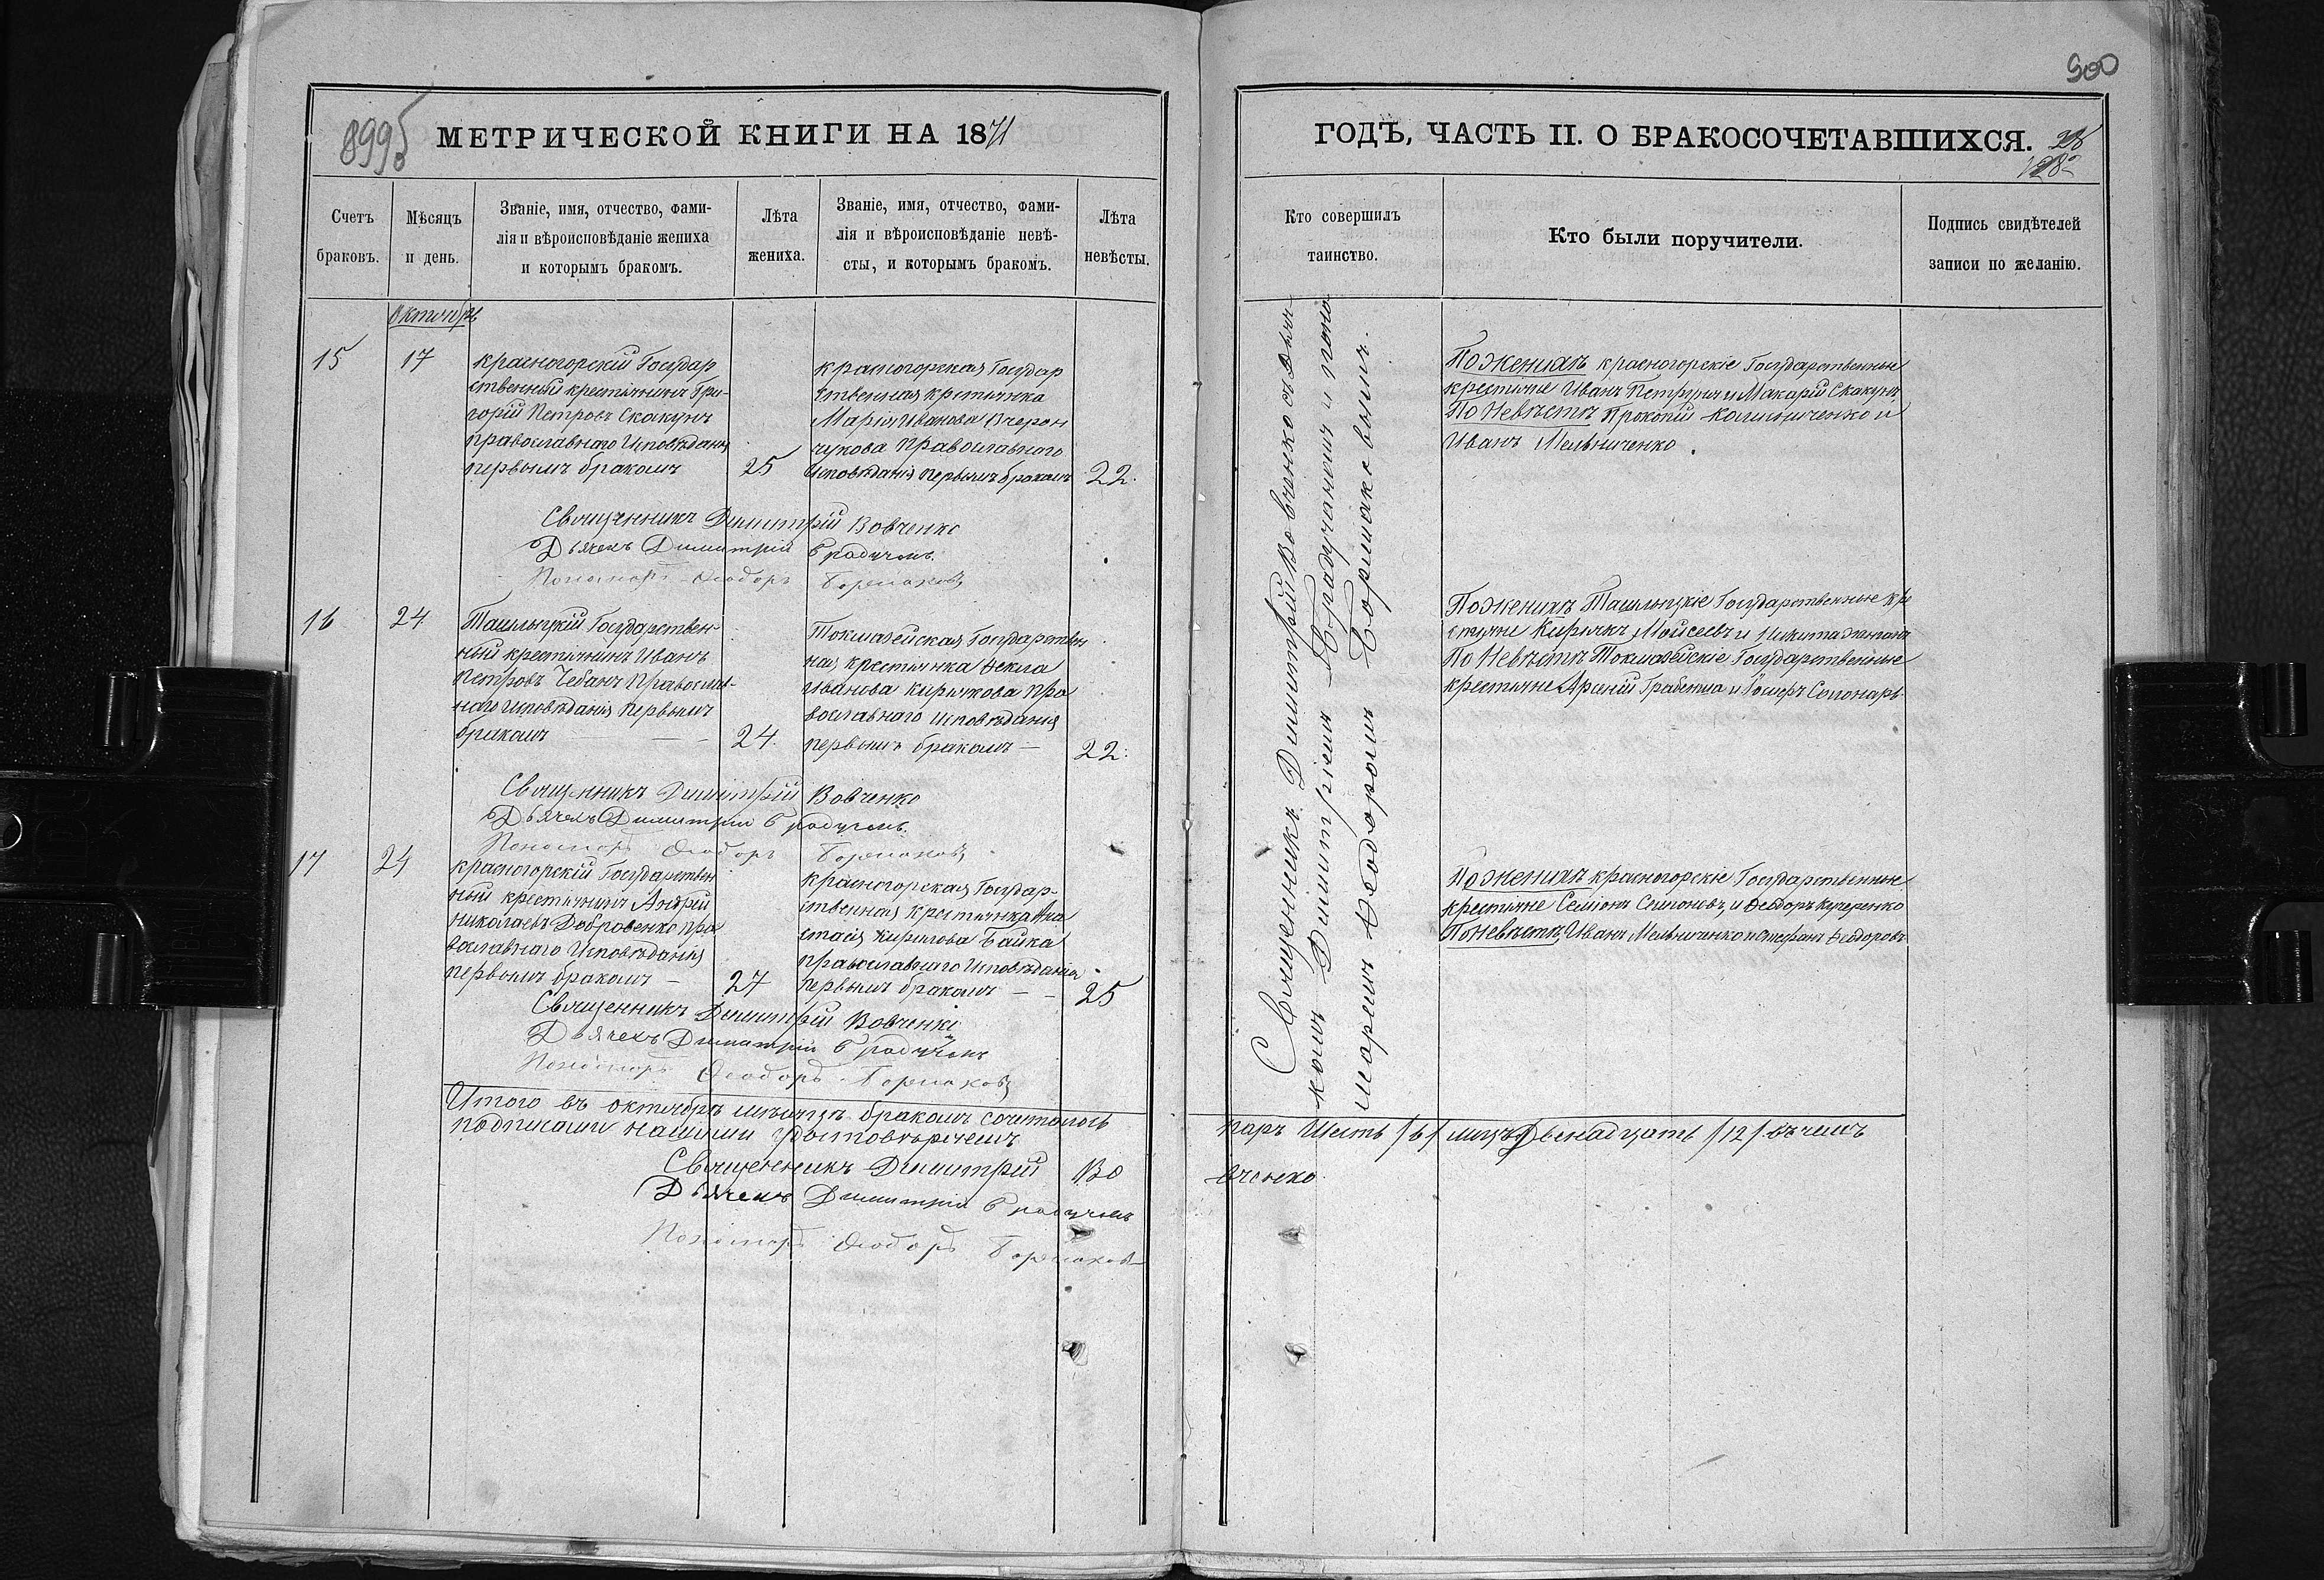 8995
МЕТРИЧЕСКОЙ КНИГИ НА 1871
Счетъ браковъ.
Мѣсяцъ и день.
Званіе, имя, отчество, фами-
лія и вѣроисповѣданіе жениха
и которымъ бракомъ.
Лѣта жениха.
Званіе, имя, отчество, фами-
лія и вѣроисповѣданіе невѣ-
сты, и которымъ бракомъ.
Лѣта невѣсты.
Октобрь
15
17
красногорскій Государ
ственный крестьянинъ Гри-
горій Петровъ Скакунъ
православнаго Исповѣданія
первымъ бракомъ
25
красногорская Государ
ственная крестьянка
Марія Иванова Вчерон
чукова православнаго
Исповѣданія первымъ бракомъ
22.
Священникъ Димитрій Вовченко
Дьячекъ Димитрій
Пономарь Ѳеодоръ
16
24
Ташлыцкій Государствен-
ный крестьянинъ Иванъ
Петровъ Чебанъ Православ-
наго Исповѣданія Первымъ
бракомъ
24.
Токмазейская Государствен
ная крестьянка Ѳекла
Иванова Кирьякова Пра
вославнаго Исповѣданія
первымъ бракомъ
22.
Священникъ Димитрій Вовченко
Дьячекъ Димитрій
Пономарь Ѳеодоръ
17
24
красногорскій Государствен
ный крестьянинъ Андрей
Николаевъ Добровенко Пра
вославнаго Исповѣданія
первымъ бракомъ
27
красногорская Государ-
ственная крестьянка Ана
стасія Кирилова Байка
православнаго Исповѣданія
первымъ бракомъ
25
Священникъ Димитрій Вовченко
Дьячекъ Димитрій
Пономарь Ѳеодоръ
Итого въ октябрѣ мѣсяцѣ бракомъ сочеталось
подписами нашими удостовѣряемъ
Священникъ Димитрій Во
Дьячекъ Димитрій
Пономарь Ѳеодоръ
900
ГОДЪ, ЧАСТЬ II. О БРАКОСОЧЕТАВШИХСЯ.
Кто совершилъ таинство.
Кто были поручители.
Подпись свидѣтелей записи по желанію.
Священникъ Димитрій Вовченко съ Дья
комъ Димитріемъ и поно
маремъ Ѳеодоромъ
По женихѣ красногорскіе Государственные
крестьяне Иванъ Петруня и Макарій Скакунъ
По Невѣстѣ Прокопій Калиниченко и
Иванъ Мельниченко.
По женихѣ Ташлыцкіе Государственные кре
стьяне Кирьякъ Мойсеевъ и Никита
По Невѣстѣ Токмазейскіе Государственные
крестьяне Арсеній и
По женихѣ красногорскіе Государственные
крестьяне Семіонъ и Ѳеодоръ Кучеренко
По невѣстѣ Иванъ Мельниченко и Стефанъ Ѳеодоровъ
паръ Шесть /6/ лицъ Двенадцать /12/ въ чемъ
вченко